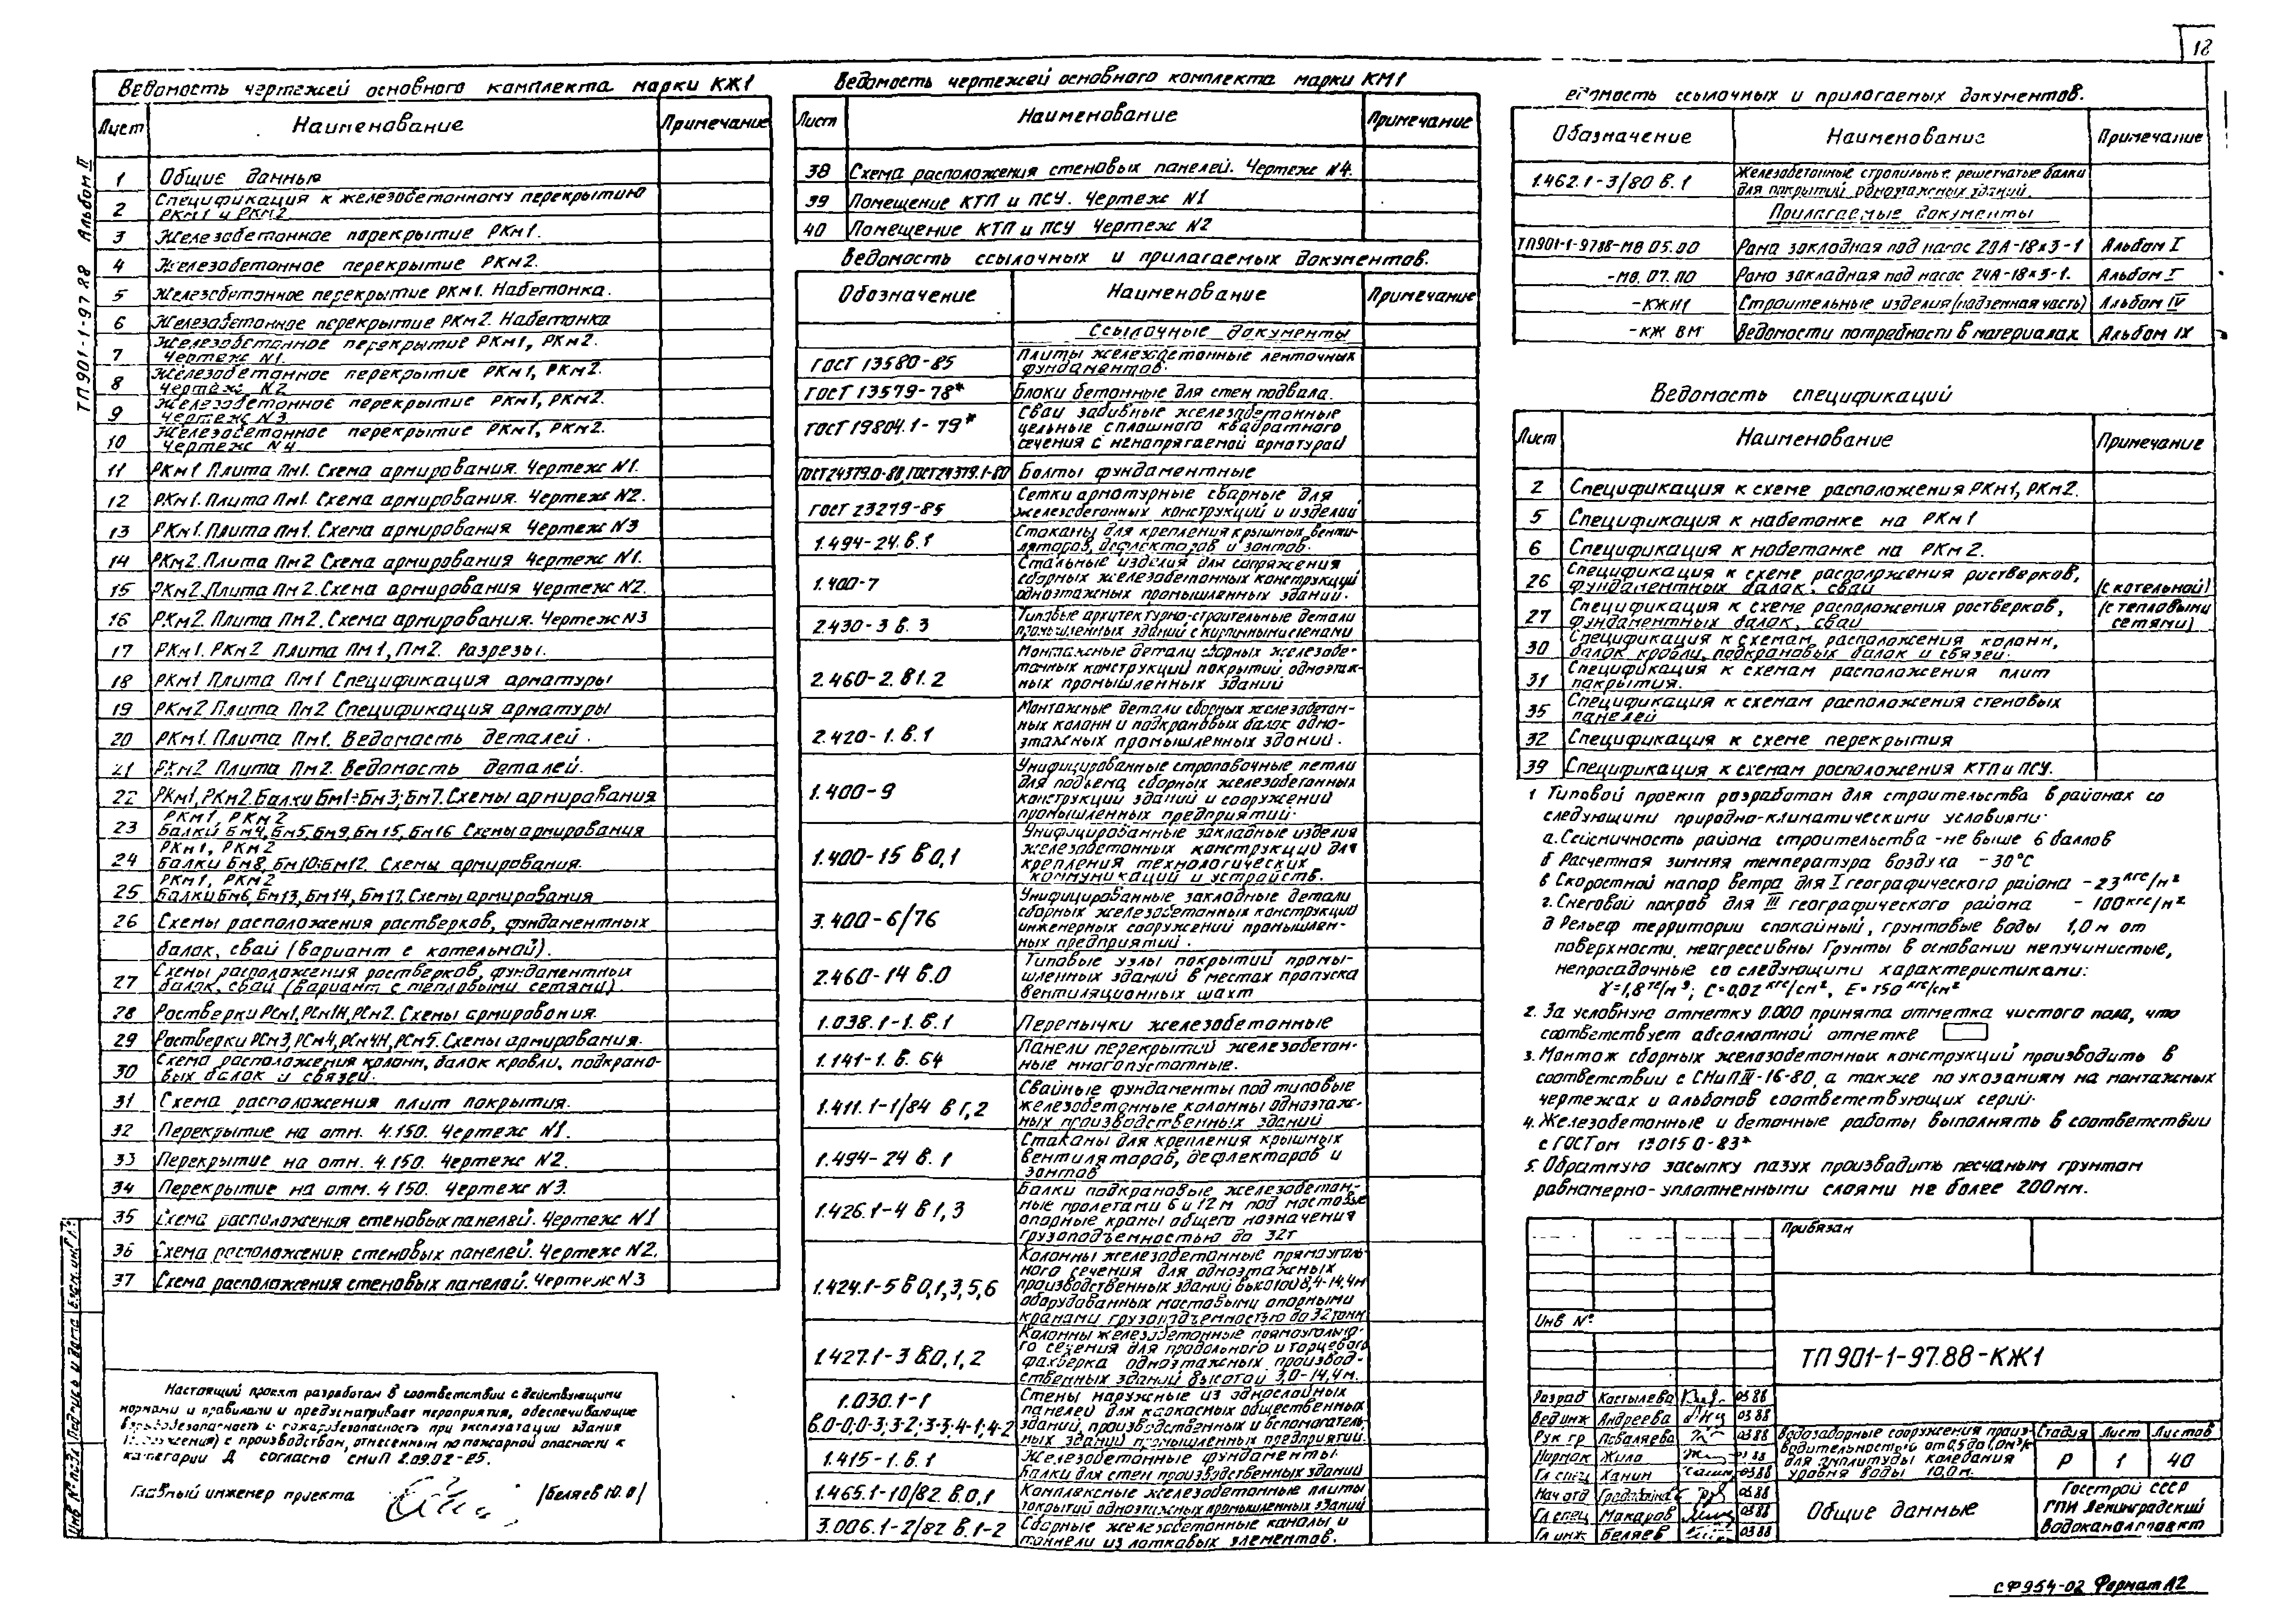 18
ТП 901-1-97.88 Альбом II
Ведомость чертежей основного комплекта марки КЖ1
Лист Наименование Примечание
1 Общие данные
2 Спецификация к железобетонному перекрытию
РКм1 и РКм2
3 Железобетонное перекрытие РКм1.
4 Железобетонное перекрытие РКм2.
5 Железобетонное перекрытие РКм1. Набетонка.
6 Железобетонное перекрытие РКм2. Набетонка
7 Железобетонное перекрытие РКм1, РКм2.
Чертеж N1.
8 Железобетонное перекрытие РКм1, РКм2.
Чертеж N2
9 Железобетонное перекрытие РКм1, РКм2.
Чертеж N3
10 Железобетонное перекрытие РКм1, РКм2.
Чертеж N4
11 РКм1 Плита Пм1. Схема армирования. Чертеж N1.
12 РКм1. Плита Пм1. Схема армирования. Чертеж N2.
13 РКм1. Плита Пм1. Схема армирования Чертеж N3
14 РКм2. Плита Пм2 Схема армирования Чертеж N1.
15 РКм2. Плита Пм2. Схема армирования Чертеж N2.
16 РКм2. Плита Пм2. Схема армирования. Чертеж N3
17 РКм1. РКм2 Плита Пм1, Пм2. Разрезы.
18 РКм1 Плита Пм1 Спецификация арматуры
19 РКм2 Плита Пм2 Спецификация арматуры
20 РКм1. Плита Пм1. Ведомость деталей.
21 РКм2 Плита Пм2. Ведомость деталей.
22 РКм1, РКм2. Балки Бм1÷Бм3; Бм7. Схемы армирования
23 РКм1, РКм2
Балки Бм4, Бм5, Бм9, Бм15, Бм16 Схемы армирования
24 РКм1, РКм2
Балки Бм8, Бм10÷Бм12. Схемы армирования.
25 РКм1, РКм2
Балки Бм6, Бм13, Бм14, Бм17. Схемы армирования
26 Схемы расположения ростверков, фундаментных
балок, свай (вариант с котельной).
27 Схемы расположения ростверков, фундаментных
балок, свай (вариант с тепловыми сетями).
28 Ростверки РСм1, РСм1Н, РСм2. Схемы армирования.
29 Ростверки РСм3, РСм4, РСм4Н, РСм5. Схемы армирования.
30 Схема расположения колонн, балок кровли, подкрано-
вых балок и связей.
31 Схема расположения плит покрытия.
32 Перекрытие на отм. 4.150. Чертеж N1.
33 Перекрытие на отм. 4.150. Чертеж N2.
34 Перекрытие на отм. 4.150. Чертеж N3.
35 Схема расположения стеновых панелей. Чертеж N1
36 Схема расположения стеновых панелей. Чертеж N2.
37 Схема расположения стеновых панелей. Чертеж N3
Настоящий проект разработан в соответствии с действующими
нормами и правилами и предусматривает мероприятия, обеспечивающие
взрывобезопасность и пожаробезопасность при эксплуатации здания
(сооружения) с производством, отнесенным по пожарной опасности к
категории Д согласно СНиП 2.09.02-85.
Главный инженер проекта /Беляев Ю.О/
Инв № подл Подпись и дата Взам. инв №
Ведомость чертежей основного комплекта марки КМ1
Лист Наименование Примечание
38 Схема расположения стеновых панелей. Чертеж N4.
39 Помещение КТП и ПСУ. Чертеж N1
40 Помещение КТП и ПСУ Чертеж N2
Ведомость ссылочных и прилагаемых документов.
Обозначение Наименование Примечание
Ссылочные документы
ГОСТ 13580-85 Плиты железобетонные ленточных
фундаментов.
ГОСТ 13579-78* Блоки бетонные для стен подвала.
ГОСТ 19804.1-79* Сваи забивные железобетонные
цельные сплошного квадратного
сечения с ненапрягаемой арматурой
ГОСТ 24379.0-80, ГОСТ 24379.1-80 Болты фундаментные
ГОСТ 23279-85 Сетки арматурные сварные для
железобетонных конструкций и изделий
1.494-24. в.1 Стаканы для крепления крышных венти-
ляторов, дефлекторов и зонтов.
1.400-7 Стальные изделия для сопряжения
сборных железобетонных конструкций
одноэтажных промышленных зданий.
2.430-3 в. 3 Типовые архитектурно-строительные детали
промышленных зданий с кирпичными стенами
2.460-2. в1. 2 Монтажные детали сборных железобе-
тонных конструкций покрытий одноэтаж-
ных промышленных зданий
2.420-1. в.1 Монтажные детали сборных железобетон-
ных колонн и подкрановых балок одно-
этажных промышленных зданий.
1.400-9 Унифицированные строповочные петли
для подъема сборных железобетонных
конструкций зданий и сооружений
промышленных предприятий.
1.400-15 в 0,1 Унифицированные закладные изделия
железобетонных конструкций для
крепления технологических
коммуникаций и устройств.
3.400-6/76 Унифицированные закладные детали
сборных железобетонных конструкций
инженерных сооружений промышлен-
ных предприятий.
2.460-14 в.0 Типовые узлы покрытий промы-
шленных зданий в местах пропуска
вентиляционных шахт
1.038.1-1. в.1 Перемычки железобетонные
1.141-1. в. 64 Панели перекрытий железобетон-
ные многопустотные.
1.411.1-1/84 в 1,2 Свайные фундаменты под типовые
железобетонные колонны одноэтаж-
ных производственных зданий
1.494-24 в. 1 Стаканы для крепления крышных
вентиляторов, дефлекторов и
зонтов
1.426.1-4 в 1, 3 Балки подкрановые железобетон-
ные пролетами 6 и 12 м под мостовые
опорные краны общего назначения
грузоподъемностью до 32т
1.424.1-5 в 0,1,3,5,6 Колонны железобетонные прямоуголь-
ного сечения для одноэтажных
производственных зданий высотой 8,4-14,4м
оборудованных мостовыми опорными
кранами грузоподъемностью до 32тонн
1.427.1-3 в.0,1,2 Колонны железобетонные прямоугольно-
го сечения для продольного и торцевого
фахверка одноэтажных производ-
ственных зданий высотой 3,0-14,4м.
1.030.1-1
в.0-0;0-3;3-2;3-3;4-1;4-2 Стены наружные из однослойных
панелей для каркасных общественных
зданий, производственных и вспомогатель-
ных зданий промышленных предприятий.
1.415-1. в.1 Железобетонные фундаментные
балки для стен производственных зданий
1.465.1-10/82 в.0,1 Комплексные железобетонные плиты
покрытий одноэтажных промышленных зданий
3.006.1-2/82 в.1-2 Сборные железобетонные каналы и
тоннели из лотковых элементов.
едомость ссылочных и прилагаемых документов.
Обозначение Наименование Примечание
1.462.1-3/80 в.1 Железобетонные стропильные решетчатые балки
для покрытий одноэтажных зданий.
Прилагаемые документы
ТП901-1-97.88-МВ 05.00 Рама закладная под насос 20А-18х3-1 Альбом I
-МВ. 07.00 Рама закладная под насос 24А-18х3-1. Альбом I
-КЖИ1 Строительные изделия (подземная часть) Альбом IV
-КЖ ВМ Ведомости потребности в материалах Альбом IX
Ведомость спецификаций
Лист Наименование Примечание
2 Спецификация к схеме расположения РКм1, РКм2.
5 Спецификация к набетонке на РКм1
6 Спецификация к набетонке на РКм2.
26 Спецификация к схеме расположения ростверков,
фундаментных балок, свай (с котельной)
27 Спецификация к схеме расположения ростверков,
фундаментных балок, свай (с тепловыми
сетями)
30 Спецификация к схемам расположения колонн,
балок кровли, подкрановых балок и связей.
31 Спецификация к схемам расположения плит
покрытия.
35 Спецификация к схемам расположения стеновых
панелей
32 Спецификация к схеме перекрытия
39 Спецификация к схемам расположения КТП и ПСУ.
1 Типовой проект разработан для строительства в районах со
следующими природно-климатическими условиями:
а. Сейсмичность района строительства - не выше 6 баллов
б Расчетная зимняя температура воздуха -30°С
в Скоростной напор ветра для I географического района -23 кгс/м²
г. Снеговой покров для III географического района - 100 кгс/м²
д Рельеф территории спокойный, грунтовые воды 1,0 м от
поверхности, неагрессивны Грунты в основании непучинистые,
непросадочные со следующими характеристиками:
γ=1,8 тс/м³; С=0,02 кгс/см², Е=150 кгс/см²
2. За условную отметку 0.000 принята отметка чистого пола, что
соответствует абсолютной отметке
3. Монтаж сборных железобетонных конструкций производить в
соответствии с СНиП III-16-80, а также по указаниям на монтажных
чертежах и альбомов соответствующих серий.
4. Железобетонные и бетонные работы выполнять в соответствии
с ГОСТом 13015.0-83*
5. Обратную засыпку пазух производить песчаным грунтом
равномерно-уплотненными слоями не более 200мм.
Привязан
Инв №
ТП 901-1-97.88-КЖ1
Разраб Костылева 03.88
Вед инж Андреева 03.88
Рук гр Поваляева 03.88
Нормок Жила 03.88
Гл спец Ханин 03.88
Нач отд 03.88
Гл спец Макаров 03.88
Гл инж Беляев 03.88
Водозаборные сооружения произ-
водительностью от 0,5 до 1,0м³/с
для амплитуды колебания
уровня воды 10,0м.
Стадия Лист Листов
Р 1 40
Общие данные
Госстрой СССР
ГПИ Ленинградский
Водоканалпроект
СФ954-02 Формат А2